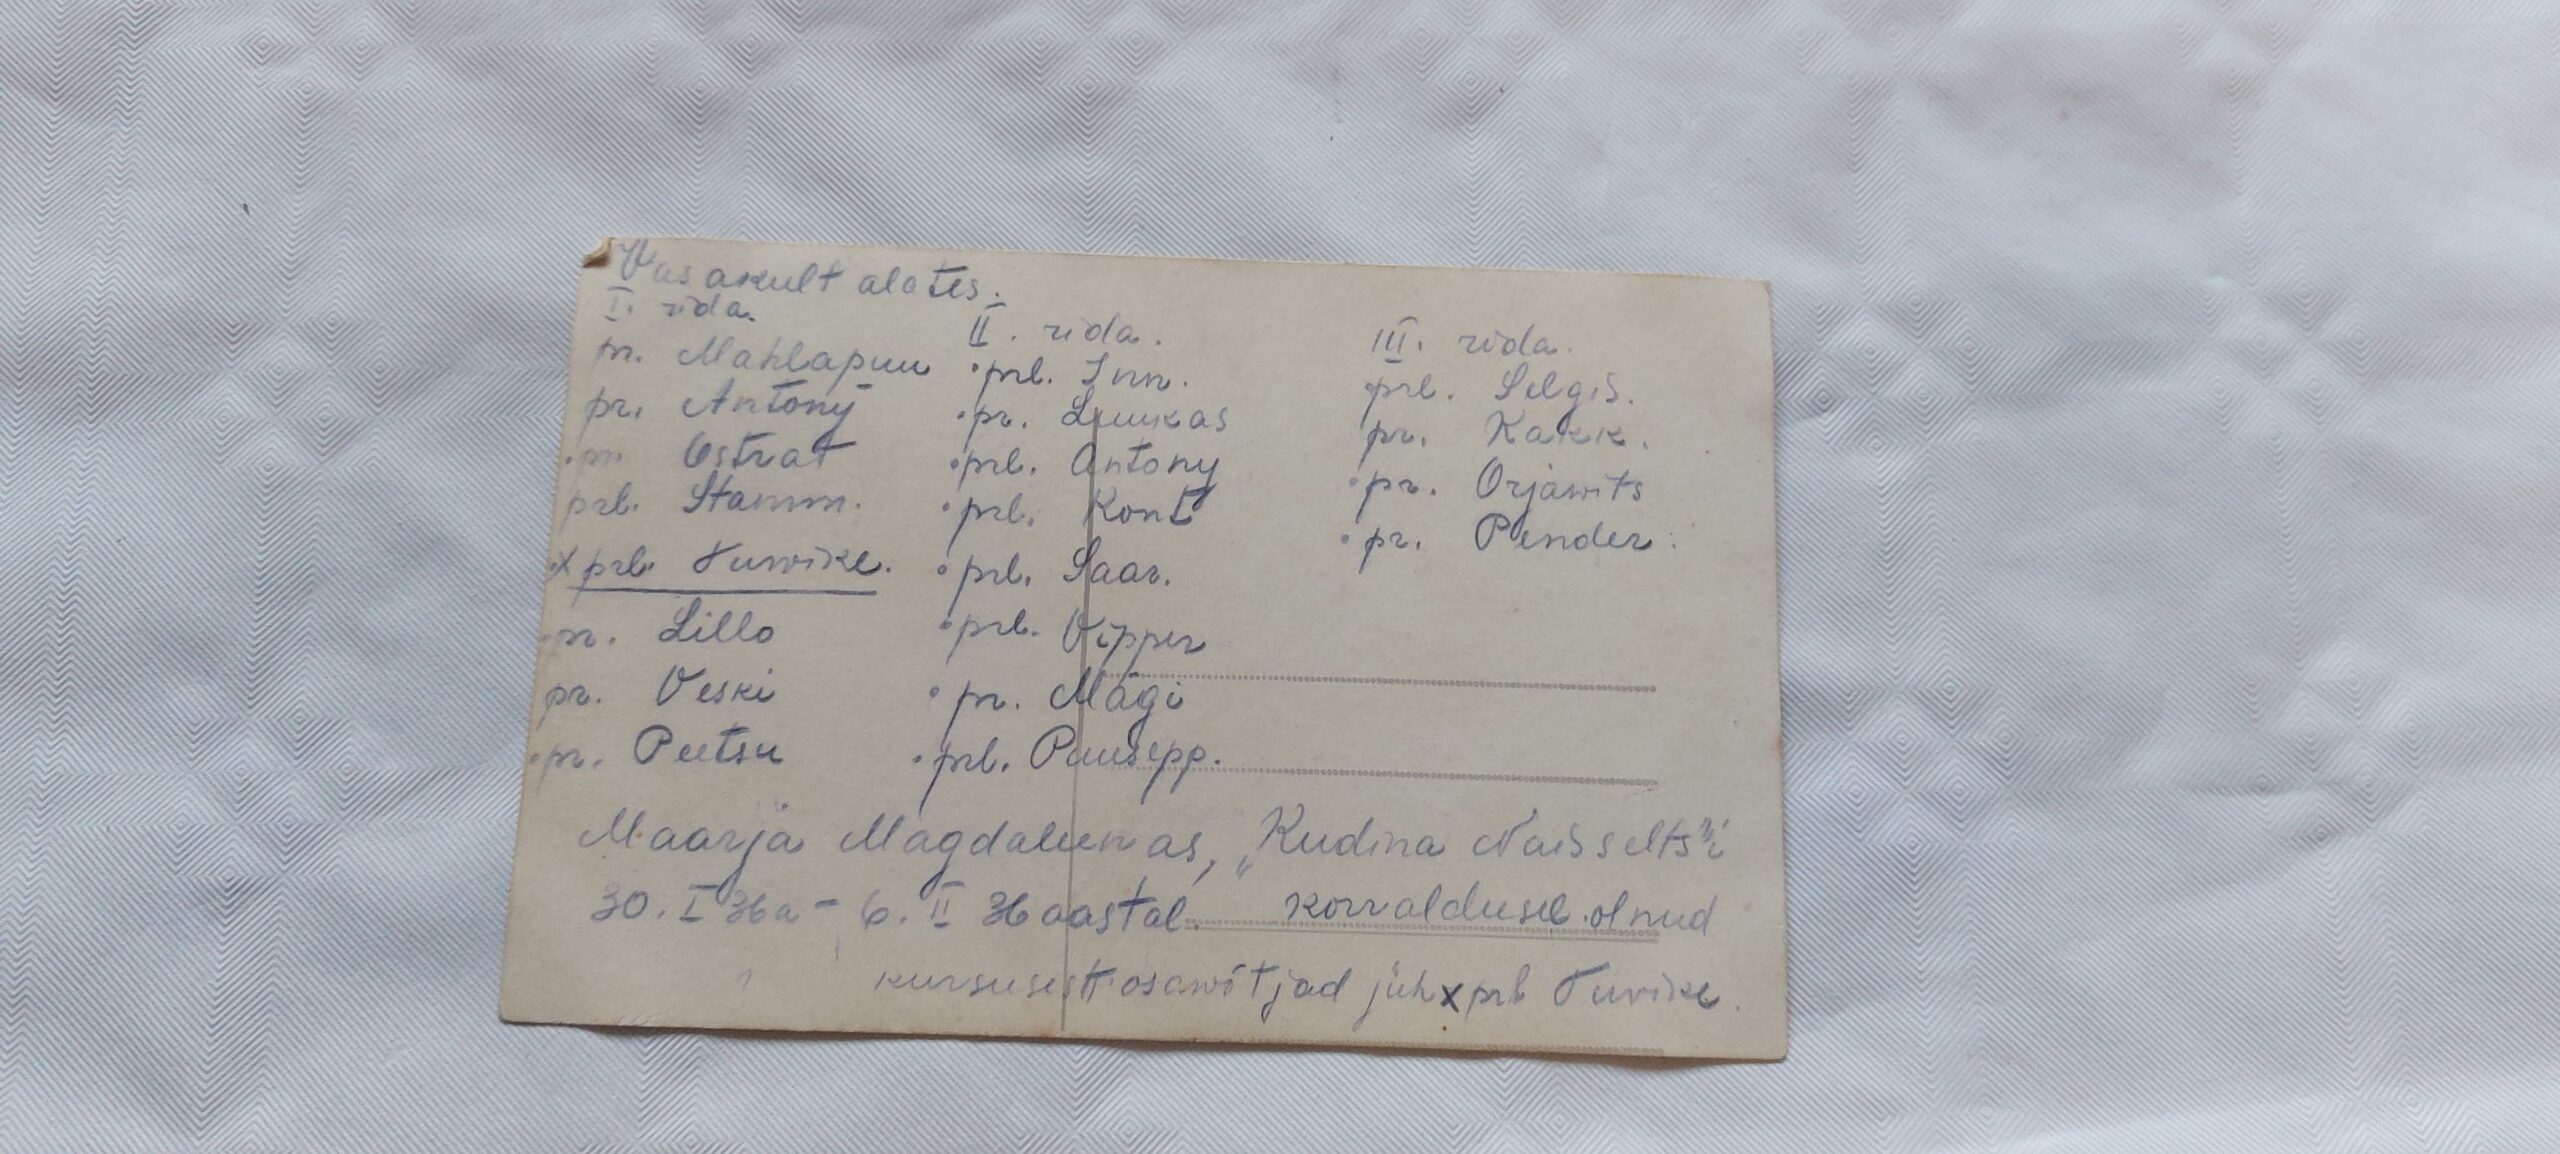 Vasakult alates.
I. rida.
pr. Mahlapuu
pr. Antony
pr. Ostrat
prl. Stamm.
x prl. Turvike.
pr. Lillo
pr. Veski
pr. Peetsu
II. rida.
prl. Inn.
pr. Luukas
prl. Antony
prl. Kont
prl. Saar.
prl. Vipper
pr. Mägi
prl. Puusepp.
III. rida.
prl. Selgis.
pr. Kakk.
pr. Orjawits
pr. Pender.
Maarja Magdaleenas, „Kudina Naisselts"i
30. I 36a - 6. II 36 aastal. korraldusel olnud
kursusest osawõtjad juh x prl Turvike.